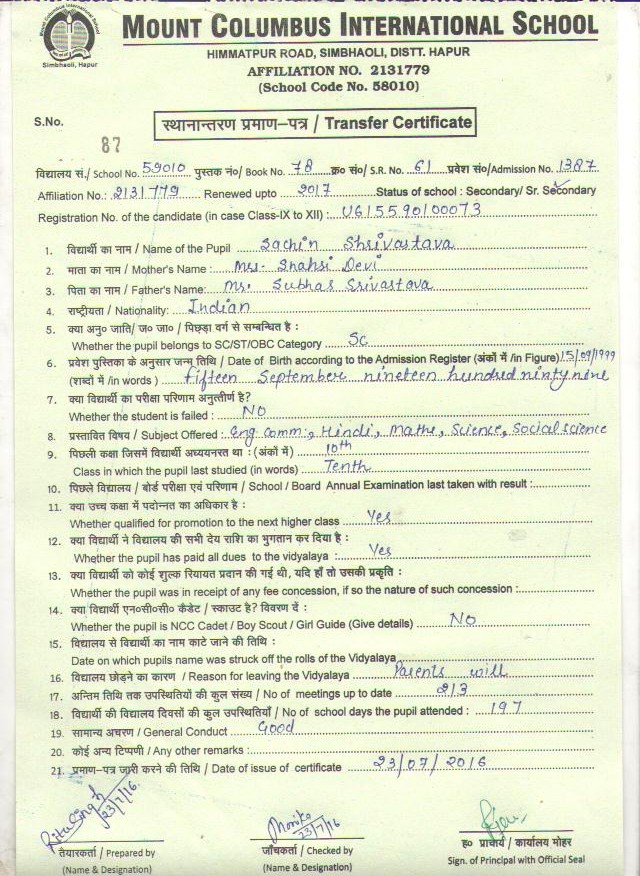 Mount Columbus International School
Simbhaoli, Hapur
MOUNT COLUMBUS INTERNATIONAL SCHOOL
HIMMATPUR ROAD, SIMBHAOLI, DISTT. HAPUR
AFFILIATION NO. 2131779
(School Code No. 58010)
S.No.
87
स्थानान्तरण प्रमाण-पत्र / Transfer Certificate
विद्यालय सं./ School No. 59010 पुस्तक नं०/ Book No. 78 क्र० सं०/ S.R. No. 61 प्रवेश सं०/Admission No. 1387
Affiliation No.: 2131779 Renewed upto 2017 Status of school : Secondary/ Sr. Secondary
Registration No. of the candidate (in case Class-IX to XII) : UG15590100073
1. विद्यार्थी का नाम / Name of the Pupil Sachin Shrivastava
2. माता का नाम / Mother's Name : Mrs. Shahsi Devi
3. पिता का नाम / Father's Name: Mr. Subhas Srivastova
4. राष्ट्रीयता / Nationality: Indian
5. क्या अनु० जाति/ ज० जा० / पिछड़ा वर्ग से सम्बन्धित है :
Whether the pupil belongs to SC/ST/OBC Category SC
6. प्रवेश पुस्तिका के अनुसार जन्म तिथि / Date of Birth according to the Admission Register (अंकों में /in Figure) 15/09/1999
(शब्दों में /in words) fifteen September nineteen hundred ninty nine
7. क्या विद्यार्थी का परीक्षा परिणाम अनुत्तीर्ण है?
Whether the student is failed : NO
8. प्रस्तावित विषय / Subject Offered : Eng comm:, Hindi, Maths, Science, Social science
9. पिछली कक्षा जिसमें विद्यार्थी अध्ययनरत था : (अंकों में ) 10th
Class in which the pupil last studied (in words) Tenth
10. पिछले विद्यालय / बोर्ड परीक्षा एवं परिणाम / School / Board Annual Examination last taken with result :
11. क्या उच्च कक्षा में पदोन्नत का अधिकार है :
Whether qualified for promotion to the next higher class Yes
12. क्या विद्यार्थी ने विद्यालय की सभी देय राशि का भुगतान कर दिया है :
Whether the pupil has paid all dues to the vidyalaya : Yes
13. क्या विद्यार्थी को कोई शुल्क रियायत प्रदान की गई थी, यदि हाँ तो उसकी प्रकृति :
Whether the pupil was in receipt of any fee concession, if so the nature of such concession :
14. क्या विद्यार्थी एन०सी०सी० कैडेट / स्काउट है? विवरण दें :
Whether the pupil is NCC Cadet / Boy Scout / Girl Guide (Give details) No
15. विद्यालय से विद्यार्थी का नाम काटे जाने की तिथि :
Date on which pupils name was struck off the rolls of the Vidyalaya
16. विद्यालय छोड़ने का कारण / Reason for leaving the Vidyalaya Parents will
17. अन्तिम तिथि तक उपस्थितियों की कुल संख्या / No of meetings up to date 213
18. विद्यार्थी की विद्यालय दिवसों की कुल उपस्थितियाँ / No of school days the pupil attended : 197
19. सामान्य अचरण / General Conduct Good
20. कोई अन्य टिप्पणी / Any other remarks :
21. प्रमाण-पत्र जारी करने की तिथि / Date of issue of certificate 23/07/2016
Ritu Singh
23/7/16
Monika
23/7/16
तैयारकर्ता / Prepared by
(Name & Designation)
जाँचकर्ता / Checked by
(Name & Designation)
ह० प्राचार्य / कार्यालय मोहर
Sign. of Principal with Official Seal